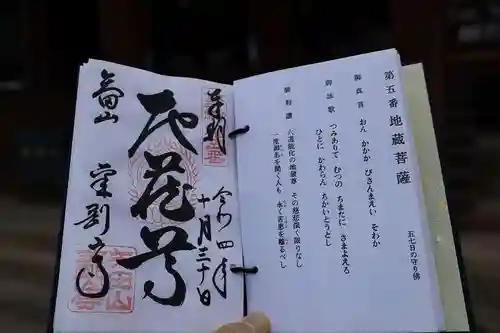 第五番 地蔵菩薩
五七日の守り佛
御真言 おん かかか びさんまえい そわか
御詠歌 つみありて むつの ちまたに さまよえる
ひとに かわらん ちかいとうとし
御和讃 六道能化の地蔵尊 その慈悲深く限りなし
一度御名を聞く人も 永く苦患を離るべし
奉拝
令和四年
十月三十日
地蔵尊